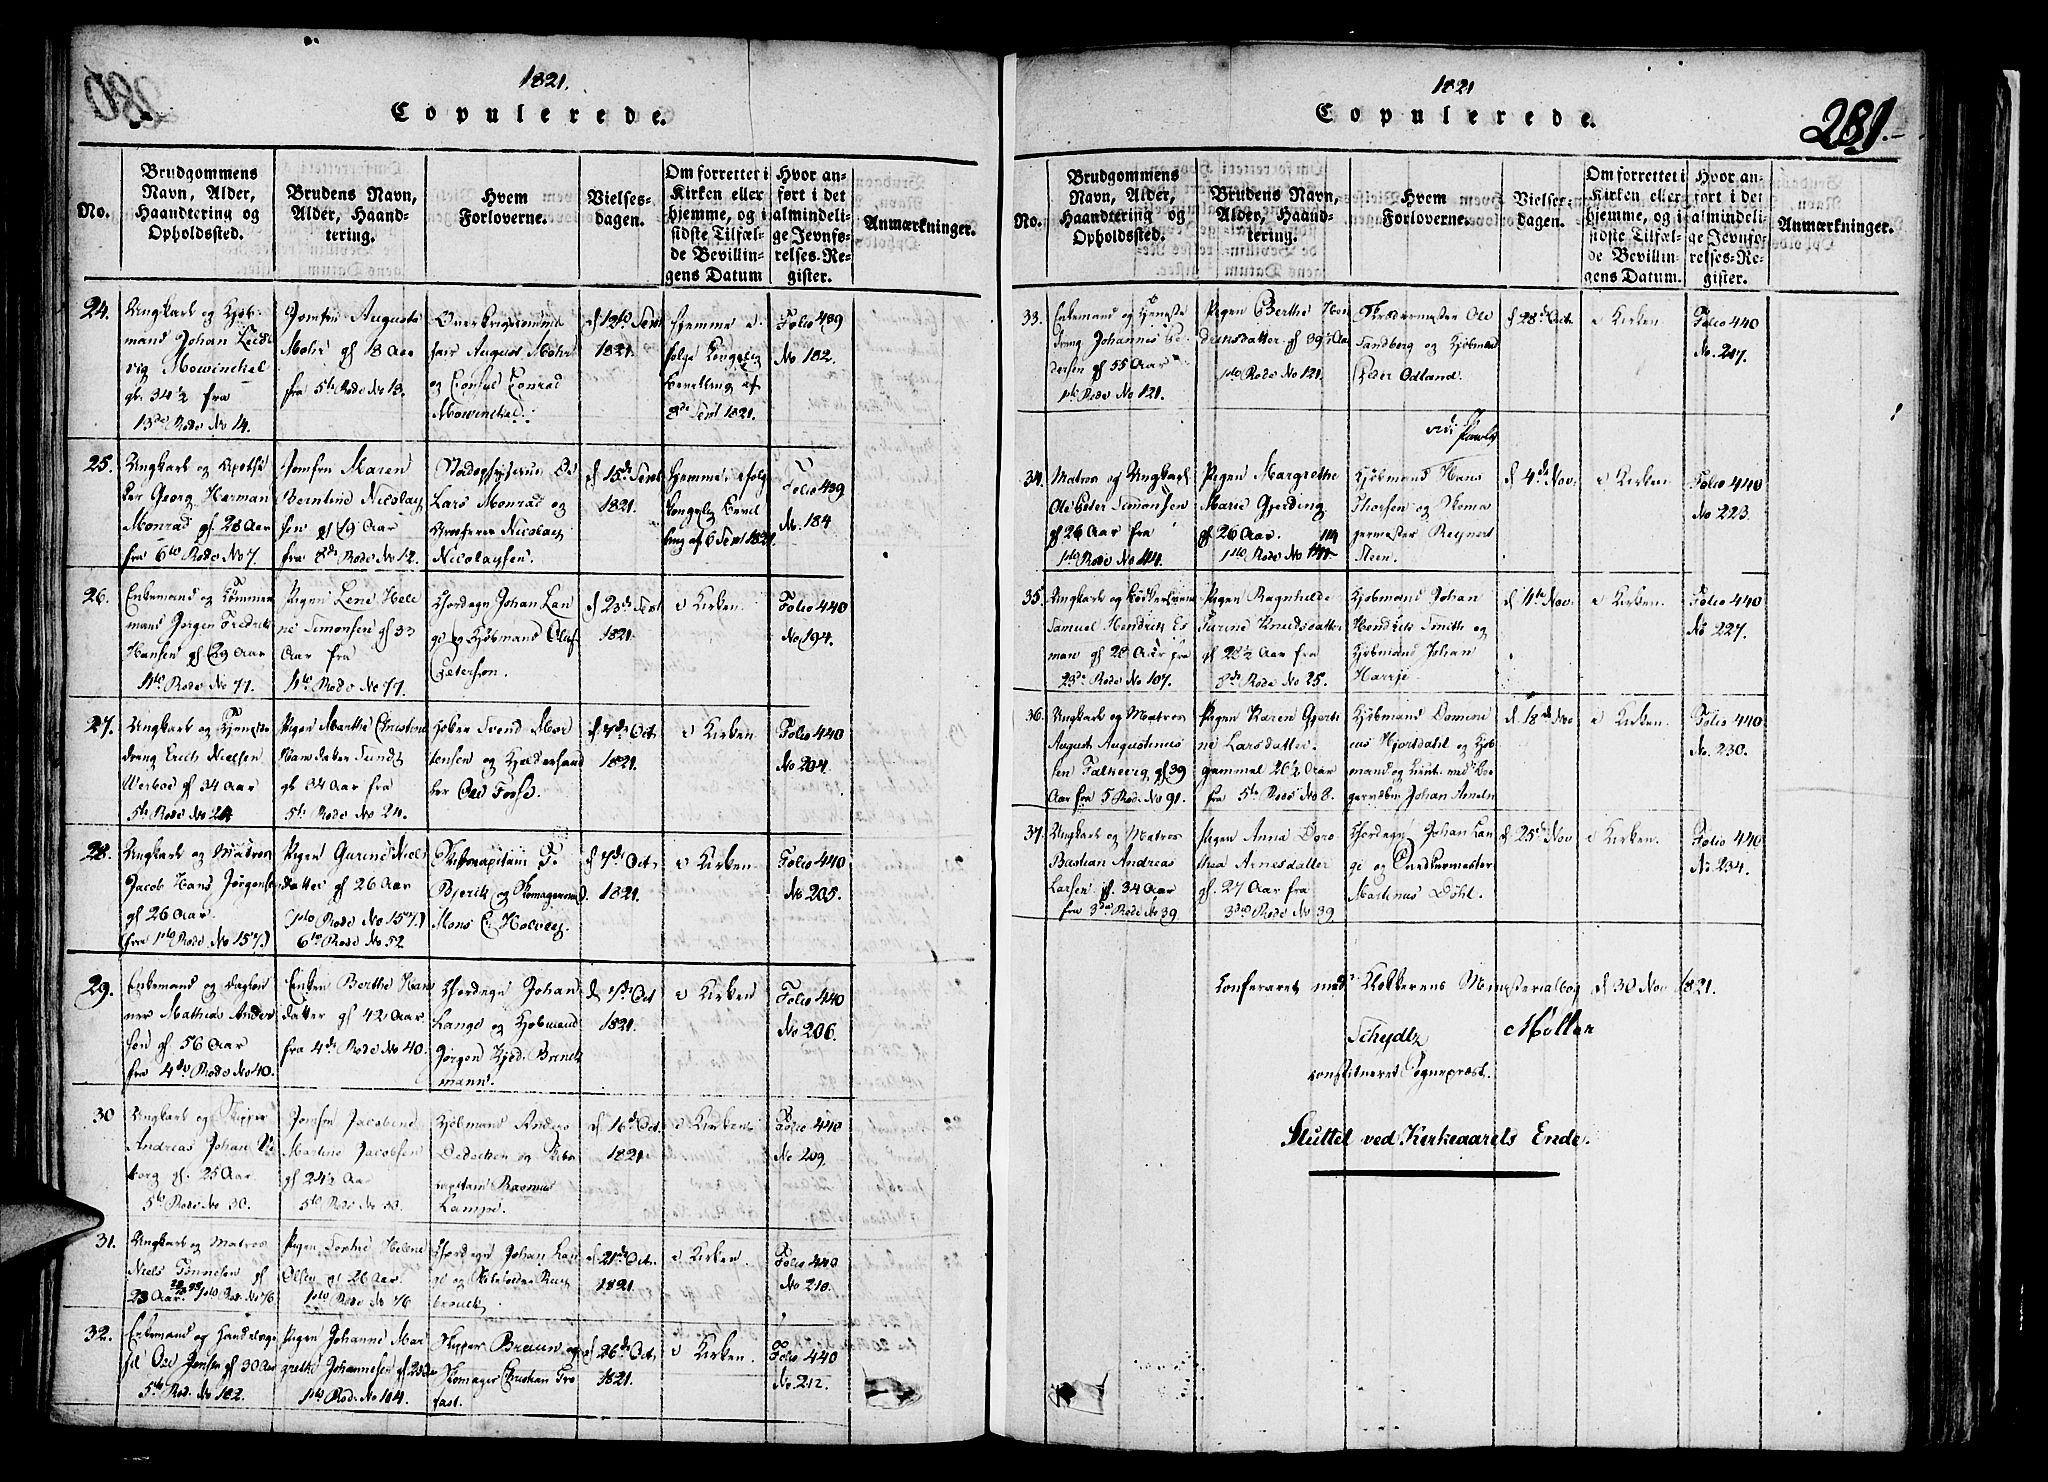 1821.
Copulerede.
No.
Brudgommens
Navn, Alder,
Haandtering og
Opholdssted.
Brudens Navn,
Alder, Haand-
tering.
Hvem
Forloverne.
Vielses-
dagen.
Om forrettet i
Kirken eller
hjemme, og i
sidste Tilfæl-
de Bevillin-
gens Datum
Hvor an-
ført i det
almindeli-
ge Jevnfø-
relses-Re-
gister.
Anmærkninger.
24.
Ungkarl og Kjøb-
mand Johan Lud-
vig Mowinckel
gl. 34½ fra
13de Rode No 14.
Jomfru Augusta
Mohr gl 18 Aar
fra 5te Rode No 13.
Overkrigscommis
sair August Mohr
og Consul Conrad
Mowinckel.
d 12te Sept
1821.
Hjemme i
følge Kongelig
bevilling af
8de Sept 1821.
Folio 439
No 182.
25.
Ungkarl og Apothe
ker Georg Herman
Monrad gl. 28 Aar
fra 6te Rode No 7.
Jomfru Maren
Berntine Nicolay
sen gl 19 Aar
fra 8de Rode No 12.
Stadsphysicus
Lars Monrad og
Nicolay
Nicolaysen.
d 15de Sept
1821.
Hjemme ifølge
kongelig Bevil
ling af 6 Sept 1821.
Folio 439
No. 184
26.
Enkemand og Tømmer
mand Jørgen Fredrik
Hansen gl 29 Aar
11te Rode No 77.
Pigen Lene Hele
ne Simonsen gl 33
Aar fra
11te Rode No 77.
Chordegn Johan Lan
ge og Kjøbmand Oluf
Peterson.
d 23de Sept
1821.
i Kirken.
Folio 440
No 194.
27.
Ungkarl og Tjeneste
dreng Erich Nielsen
gl 34 Aar
5te Rode No 24
Pigen Marthe Christine
Hansdatter Sundt
gl 34 Aar fra
5te Rode No 24.
Høker Svend Mor
tensen og
d 7de Oct
1821.
i Kirken
Folio 440
No 204.
28.
Ungkarl og Matros
Jacob Hans Jørgensen
gl 26 Aar.
(fra 1ste Rode No 157.)
Pigen Gurine Niels
datter gl 26 Aar
(1ste Rode No 157.)
6te Rode No 52
Skibscapitain
Bjerck og Skomagermd.
Mons E. Holvey.
d 7de Oct
1821.
i Kirken.
Folio 440
No 205.
29.
Enkemand og Dagløn
ner Mathias Ander
sen gl 56 Aar
fra 4de Rode No 40.
Enken Berthe Hans
datter gl 42 Aar
fra 4de Rode No 40.
Chordegn Johan
Lange og Kjøbmand
Jørgen
mann.
d 7de Oct
1821.
i Kirken
Folio 440
No 206.
30
Ungkarl og Skipper
Andreas Johan
gl. 25 Aar
5te Rode No 30.
Jomfru Jacobine
Martine Jacobsen
gl 24½ Aar
5te Rode No 30.
Kjøbmand
Dedechen og Skibs
capitain Rasmus
Lampe.
d 16de Oct.
1821.
i Kirken
Folio 440
No 209.
31.
Ungkarl og Matros
Niels Tønnesen gl
23 Aar. 1ste Rod. No 76
Pigen Sophie Helene
Olsen gl 26 Aar.
1ste Rode No 76
Chordegn Johan Lan
ge og
d 21de Oct.
1821.
i Kirken.
Folio 440
No 210.
32.
Enkemand og
Ole Jensen gl 30 Aar
5te Rod. No 182.
Pigen Johanne Mar
grethe Johannesen gl
1ste Rode No 114.
Skipper Bruun og
Skomager Christian Tro
fast.
d 26de Oct.
1821.
i Kirken.
Folio 440
No 212.
1821
Copulerede.
281.
No.
Brudgommens
Navn, Alder,
Haandtering og
Opholdssted.
Brudens Navn,
Alder, Haand-
tering.
Hvem
Forloverne.
Vielses-
dagen.
Om forrettet i
Kirken eller
hjemme, og i
sidste Tilfæl-
de Bevillin-
gens Datum.
Hvor an-
ført i det
almindeli-
ge Jevnfø-
relses-Re-
gister.
Anmærkninger.
33.
Enkemand og Tjeneste
dreng Johannis Pe
dersen gl 55 Aar
1ste Rode No 121.
Pigen Berthe
gl 39½ Aar
1ste Rode No 121.
Skrædermester Ole
Sandberg og Kjøbmand
Peder Odland.
d 28de Oct.
i Kirken
Folio 440
No. 217.
34.
Matros og Ungkarl
Ole Peter Simonsen
gl 26 Aar fra
1ste Rode No 114.
Pigen Margrethe
Marie Gjerding
gl 26 Aar.
1ste Rode No 114
Kjøbmand Hans
Thorsen og Skoma
germester Reynert
Steen.
d 4de Nov.
i Kirken.
Folio 440
No 223.
35.
Ungkarl og Bødkersvend
Samuel Hendrik Es
man gl 28 Aar fra
23de Rode No 107.
Pigen Ragnhilde
Turine Knudsdatter
gl 28½ Aar fra
8de Rode No 25.
Kjøbmand Johan
Hendrik Smith og
Kjøbmand Johan
Harrje.
d 11te Nov.
i Kirken.
Folio 440
No 227.
36.
Ungkarl og Matros
August Augustinus
sen Falkberg gl 39
Aar fra 5 Rode No 91.
Pigen Karen Gjerti
ne Larsdatter.
gammel 26½ Aar
fra 5te Rode No 8.
Kjøbmand Domini
cus Hjortdahl og Kjøb
mand og Lieut. ved Bor
gervæbn Johan Ameln
d. 18de Nov
i Kirken.
Folio 440
No. 230.
37.
Ungkarl og Matros
Bastian Andreas
Larsen gl. 34 Aar
fra 3die Rode No 39
Pigen Anna Doro
thea Arnesdatter
gl. 27 Aar fra
3die Rode No 39
Chordegn Johan Lan
ge og Snedkermester
Martinus Döhl.
d 25de Nov
i Kirken.
Folio 440
No 234.
Confereret med Klokkerens Ministerialbog d 30 Nov 1821.
Scheydtz
Møller
constitueret Sognepræst.
Sluttet ved Kirkeaarets Ende.